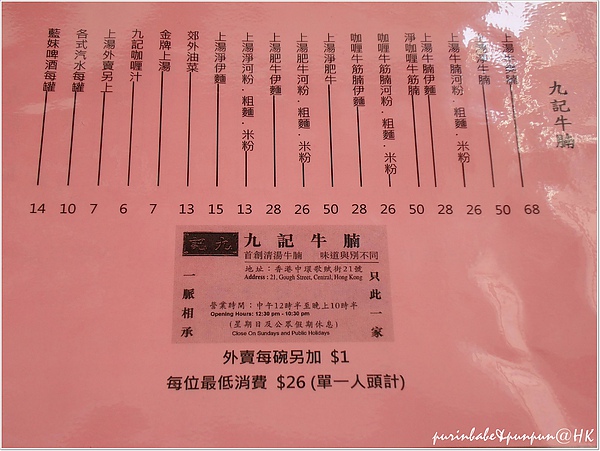 九記牛腩
上湯牛腩
上湯牛腩
上湯牛腩河粉．粗麵．米粉
上湯牛腩伊麵
淨咖喱牛筋腩
咖喱牛筋腩河粉．粗麵．米粉
咖喱牛筋腩伊麵
上湯淨肥牛
上湯肥牛河粉．粗麵．米粉
上湯肥牛伊麵
上湯淨河粉．粗麵．米粉
上湯淨伊麵
郊外油菜
金牌上湯
九記咖喱汁
上湯外賣另上
各式汽水每罐
藍妹啤酒每罐
14 10 7 6 7 13 15 13 28 26 50 28 26 50 28 26 50 68
九記
九記牛腩
首創清湯牛腩 味道與別不同
地址：香港中環歌賦街21號
Address : 21, Gough Street, Central, Hong Kong
只此一家
一脈相承
營業時間：中午12時半至晚上10時半
Opening Hours: 12:30 pm - 10:30 pm
(星期日及公眾假期休息)
Close On Sundays and Public Holidays
外賣每碗另加 $1
每位最低消費 $26 (單一人頭計)
purinbabe&punpun@HK